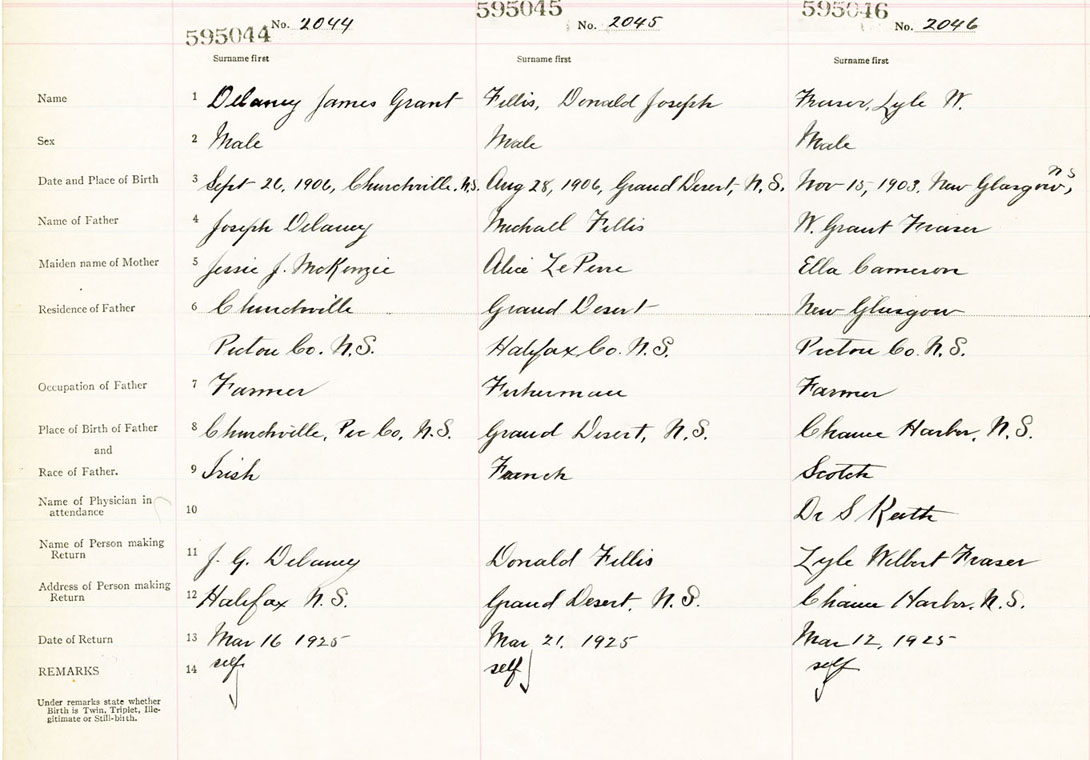 595044 No. 2044 595045 No. 2045 595046 No. 2046
Surname first Surname first Surname first
Name 1 Delaney James Grant Fillis, Donald Joseph Fraser, Lyle W.
Sex 2 Male Male Male
Date and Place of Birth 3 Sept 26, 1906, Churchville, N.S. Aug 28, 1906, Grand Desert, N.S. Nov 15, 1903, New Glasgow, N S
Name of Father 4 Joseph Delaney Michall Fillis W. Grant Fraser
Maiden name of Mother 5 Jessie J. McKenzie Alice Ella Cameron
Residence of Father 6 Churchville Grand Desert New Glasgow
Pictou Co. N.S. Halifax Co. N.S. Pictou Co. N.S.
Occupation of Father 7 Farmer Fisherman Farmer
Place of Birth of Father 8 Churchville, Pic Co, N.S. Grand Desert, N.S. Chance Harbor, N.S.
and
Race of Father. 9 Irish French Scotch
Name of Physician in
attendance 10 Dr S Keith
Name of Person making
Return 11 J. G. Delaney Donald Fillis Lyle Wilbert Fraser
Address of Person making
Return 12 Halifax N.S. Grand Desert, N.S. Chance Harbor, N.S.
Date of Return 13 Mar 16 1925 Mar 21, 1925 Mar 12, 1925
REMARKS 14 self self self
Under remarks state whether
Birth is Twin, Triplet, Ille-
gitimate or Still-birth.